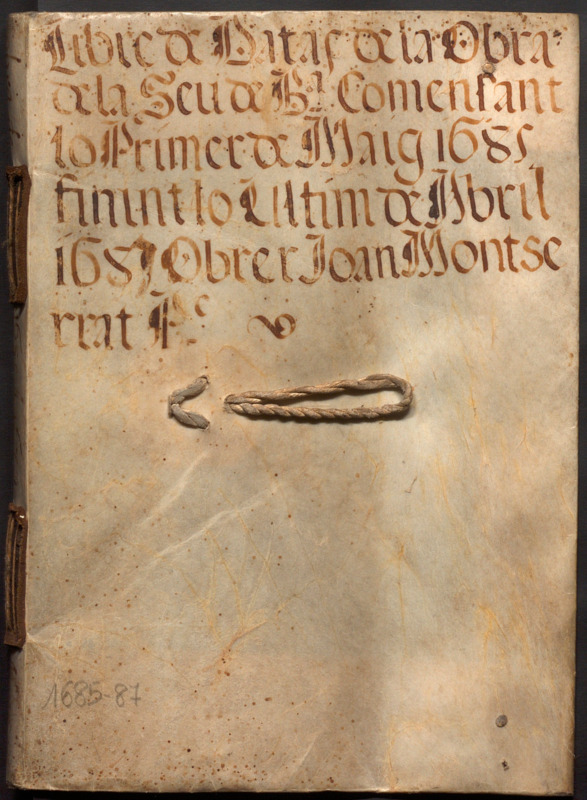 Libre de Datas de la Obra
de la Seu de Ba Comensant
lo Primer de Maig 1685
finint lo Ultim de Abril
1687 Obrer Joan Montse
rrat Pe
1685-87